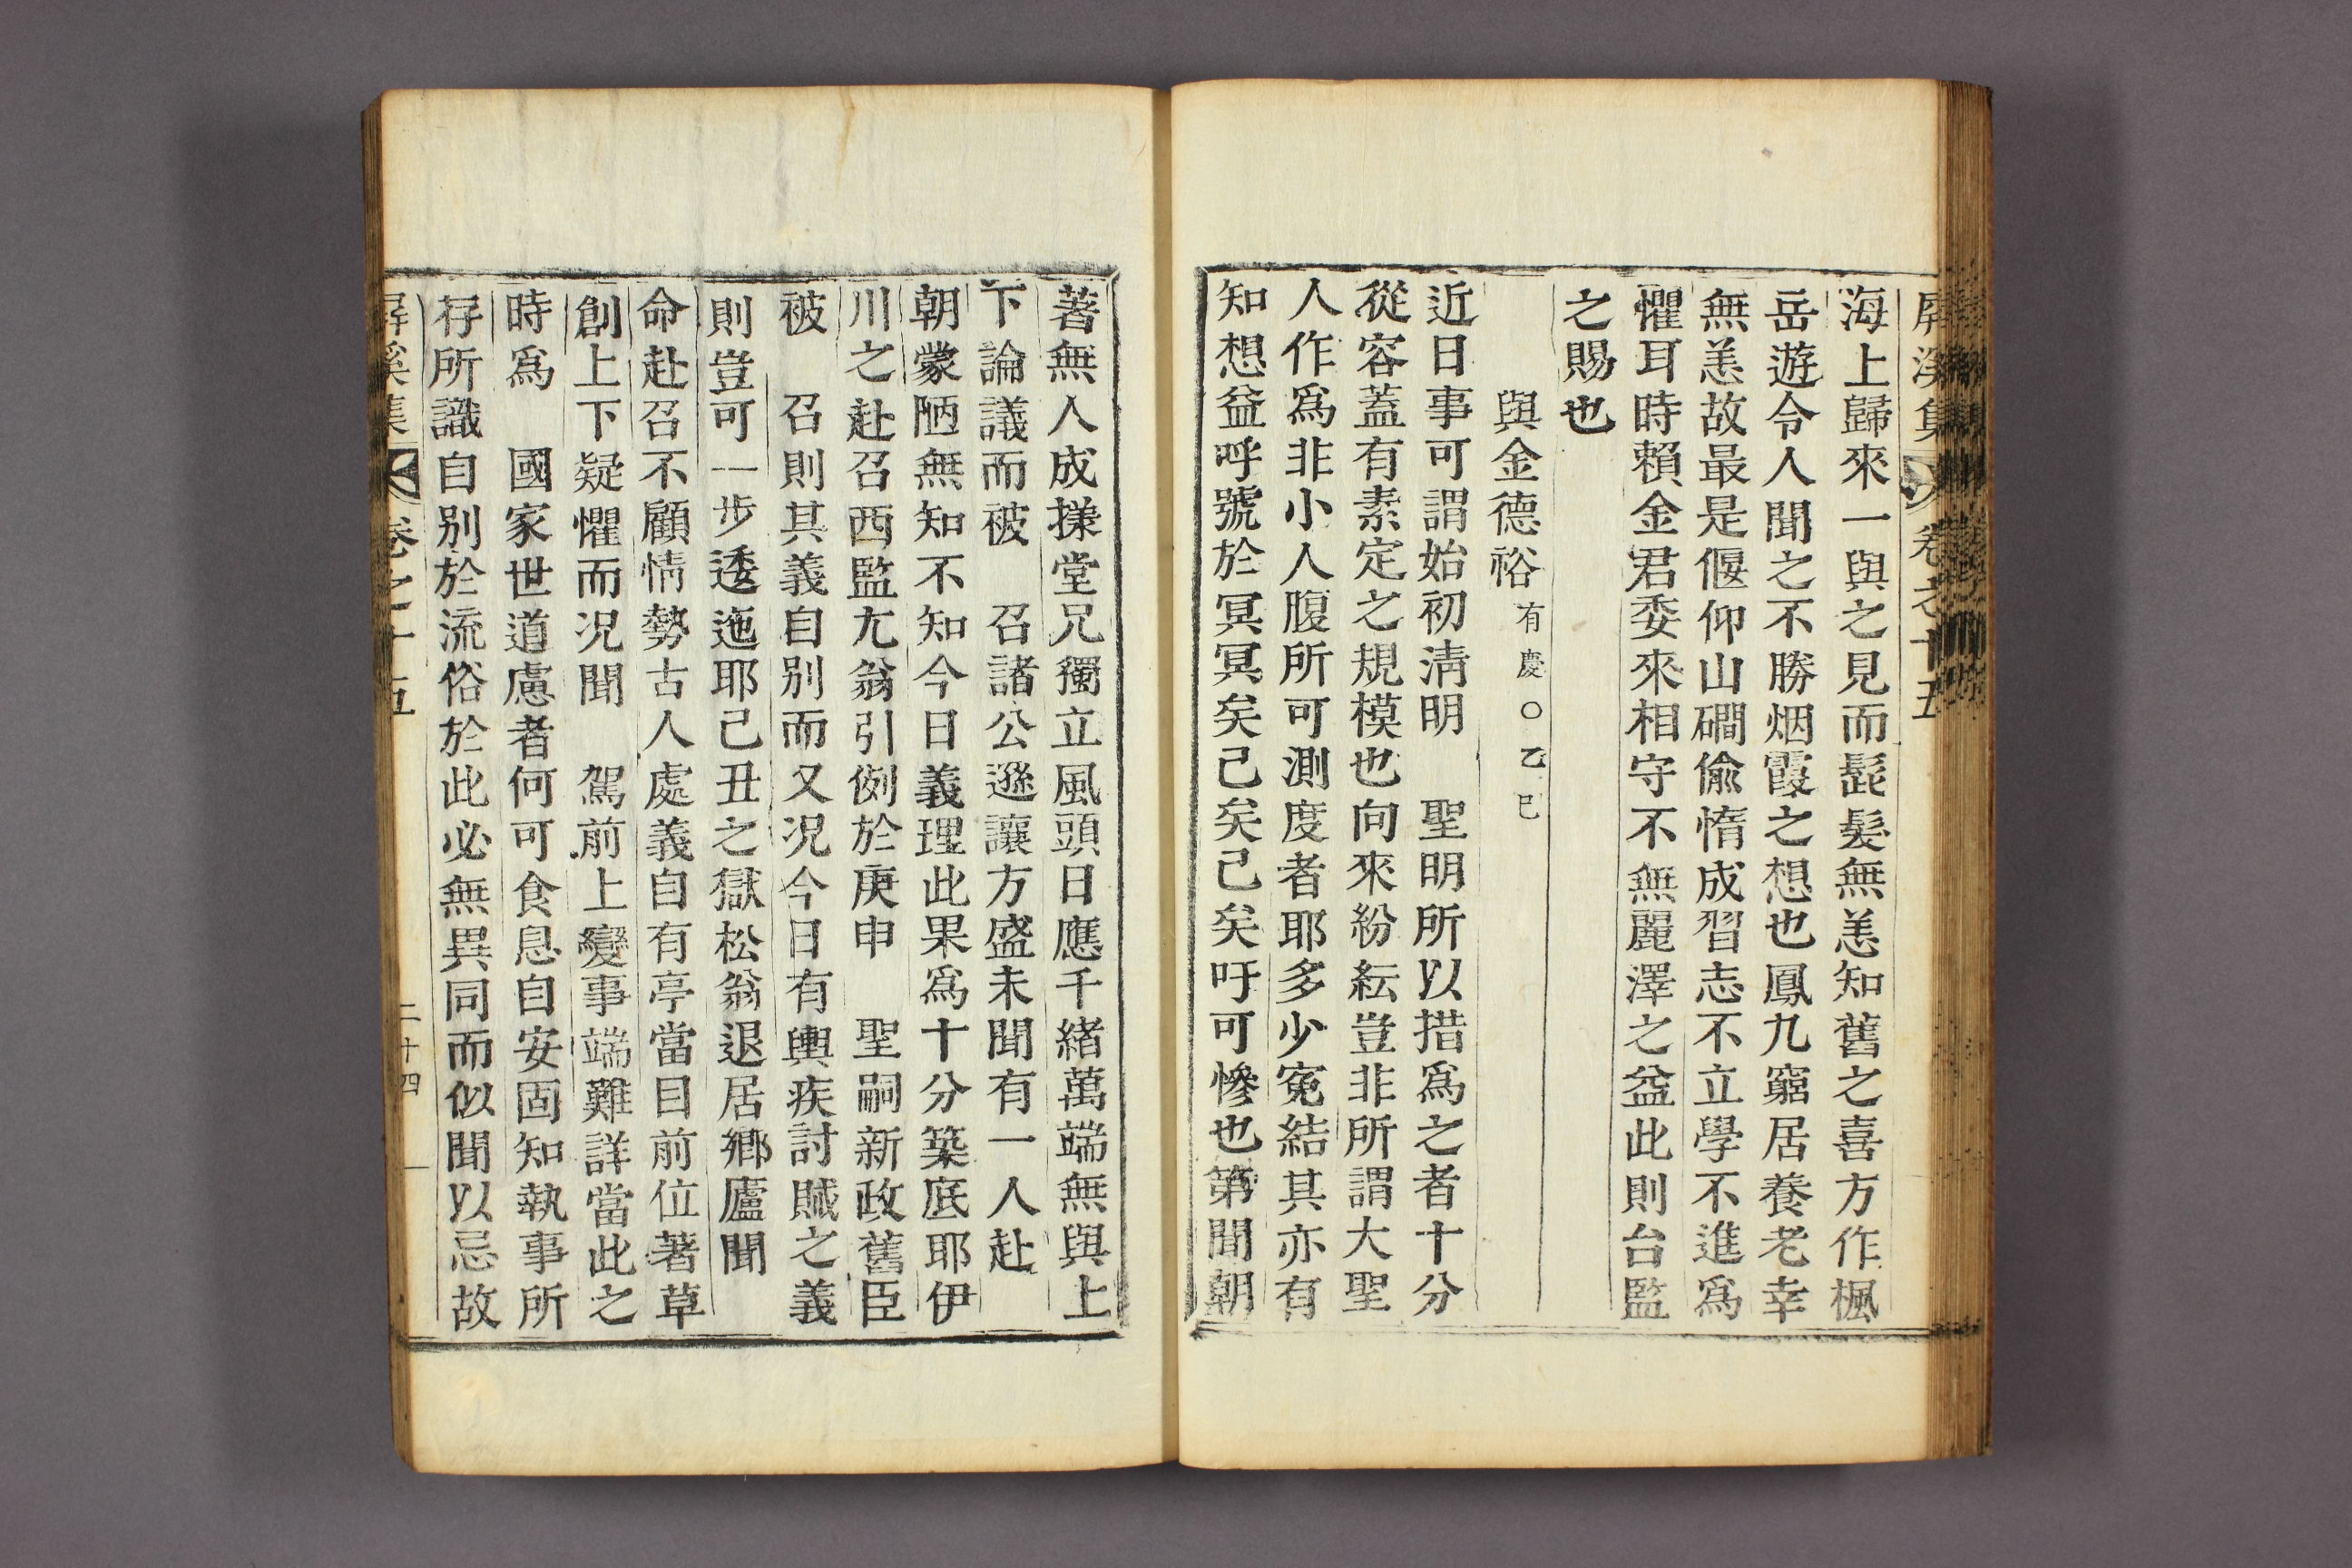 屏溪集 卷之十五
海上歸來一與之見而髭髮無恙知舊之喜方作楓
岳遊令人聞之不勝烟霞之想也鳳九窮居養老幸
無恙故最是偃仰山磵偸惰成習志不立學不進爲
懼耳時賴金君委來相守不無麗澤之益此則台監
之賜也
與金德裕 有慶○乙巳
近日事可謂始初淸明 聖明所以措爲之者十分
從容蓋有素定之規模也向來紛紜豈非所謂大聖
人作爲非小人腹所可測度者耶多少寃結其亦有
知想益呼號於冥冥矣已矣已矣吁可慘也第聞朝
著無人成㨾堂兄獨立風頭日應千緖萬端無與上
下論議而被 召諸公遜讓方盛未聞有一人赴
朝蒙陋無知不知今日義理此果爲十分築底耶伊
川之赴召西監尤翁引例於庚申 聖嗣新政舊臣
被 召則其義自別而又况今日有輿疾討賊之義
則豈可一步逶迤耶己丑之獄松翁退居鄕廬聞
命赴召不顧情勢古人處義自有亭當目前位著草
創上下疑懼而况聞 駕前上變事端難詳當此之
時爲 國家世道慮者何可食息自安固知執事所
存所識自別於流俗於此必無異同而似聞以忌故
屏溪集 卷之十五 二十四